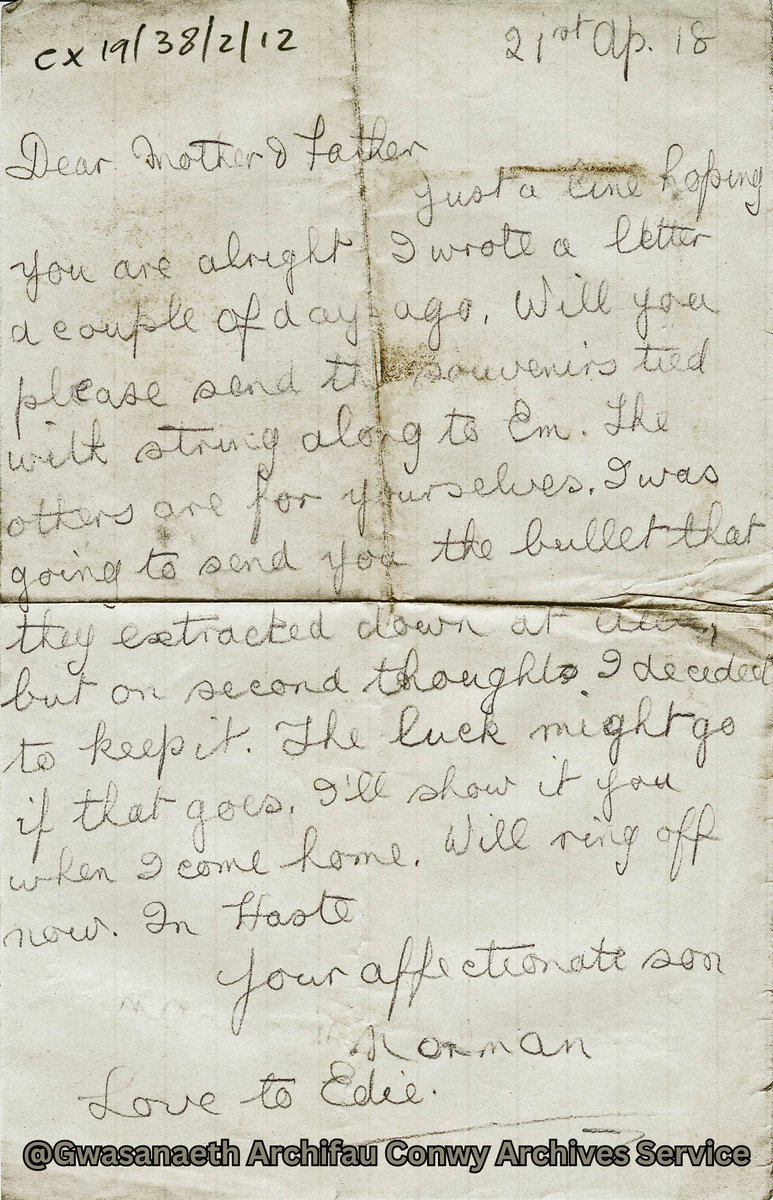 cx 19/38/2/12
21st Ap. 18
Dear Mother & Father
Just a line hoping
you are alright I wrote a letter
a couple of days ago. Will you
please send the souvenirs tied
with string along to Em. The
others are for yourselves. I was
going to send you the bullet that
they extracted down at
but on second thoughts I decided
to keep it. The luck might go
if that goes. I'll show it you
when I come home. Will ring off
now. In Haste
Your affectionate son
Norman
Love to Edie.
@Gwasanaeth Archifau Conwy Archives Service